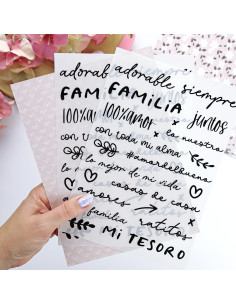 adorable siempre
FAMILIA
100%amor x juntos
con toda mi alma la nuestra
#amordelbueno
lo mejor de mi vida
cosas de casa
amores
familia ratitos x
Mi TESORO
adorab
FAM
100%a
con t